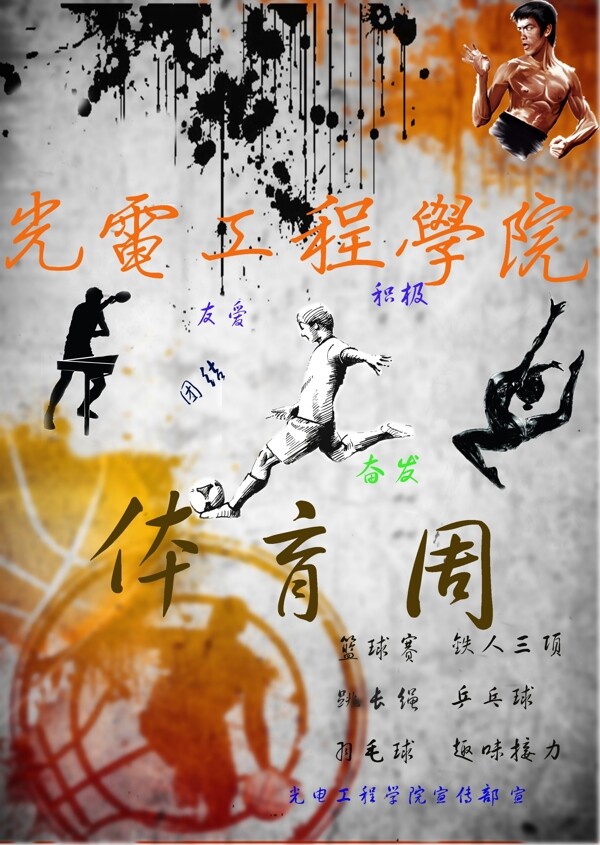 光電工程學院
积极
友爱
团结
奋发
体育周
篮球赛 铁人三项
跳长绳 乒乓球
羽毛球 趣味接力
光电工程学院宣传部 宣